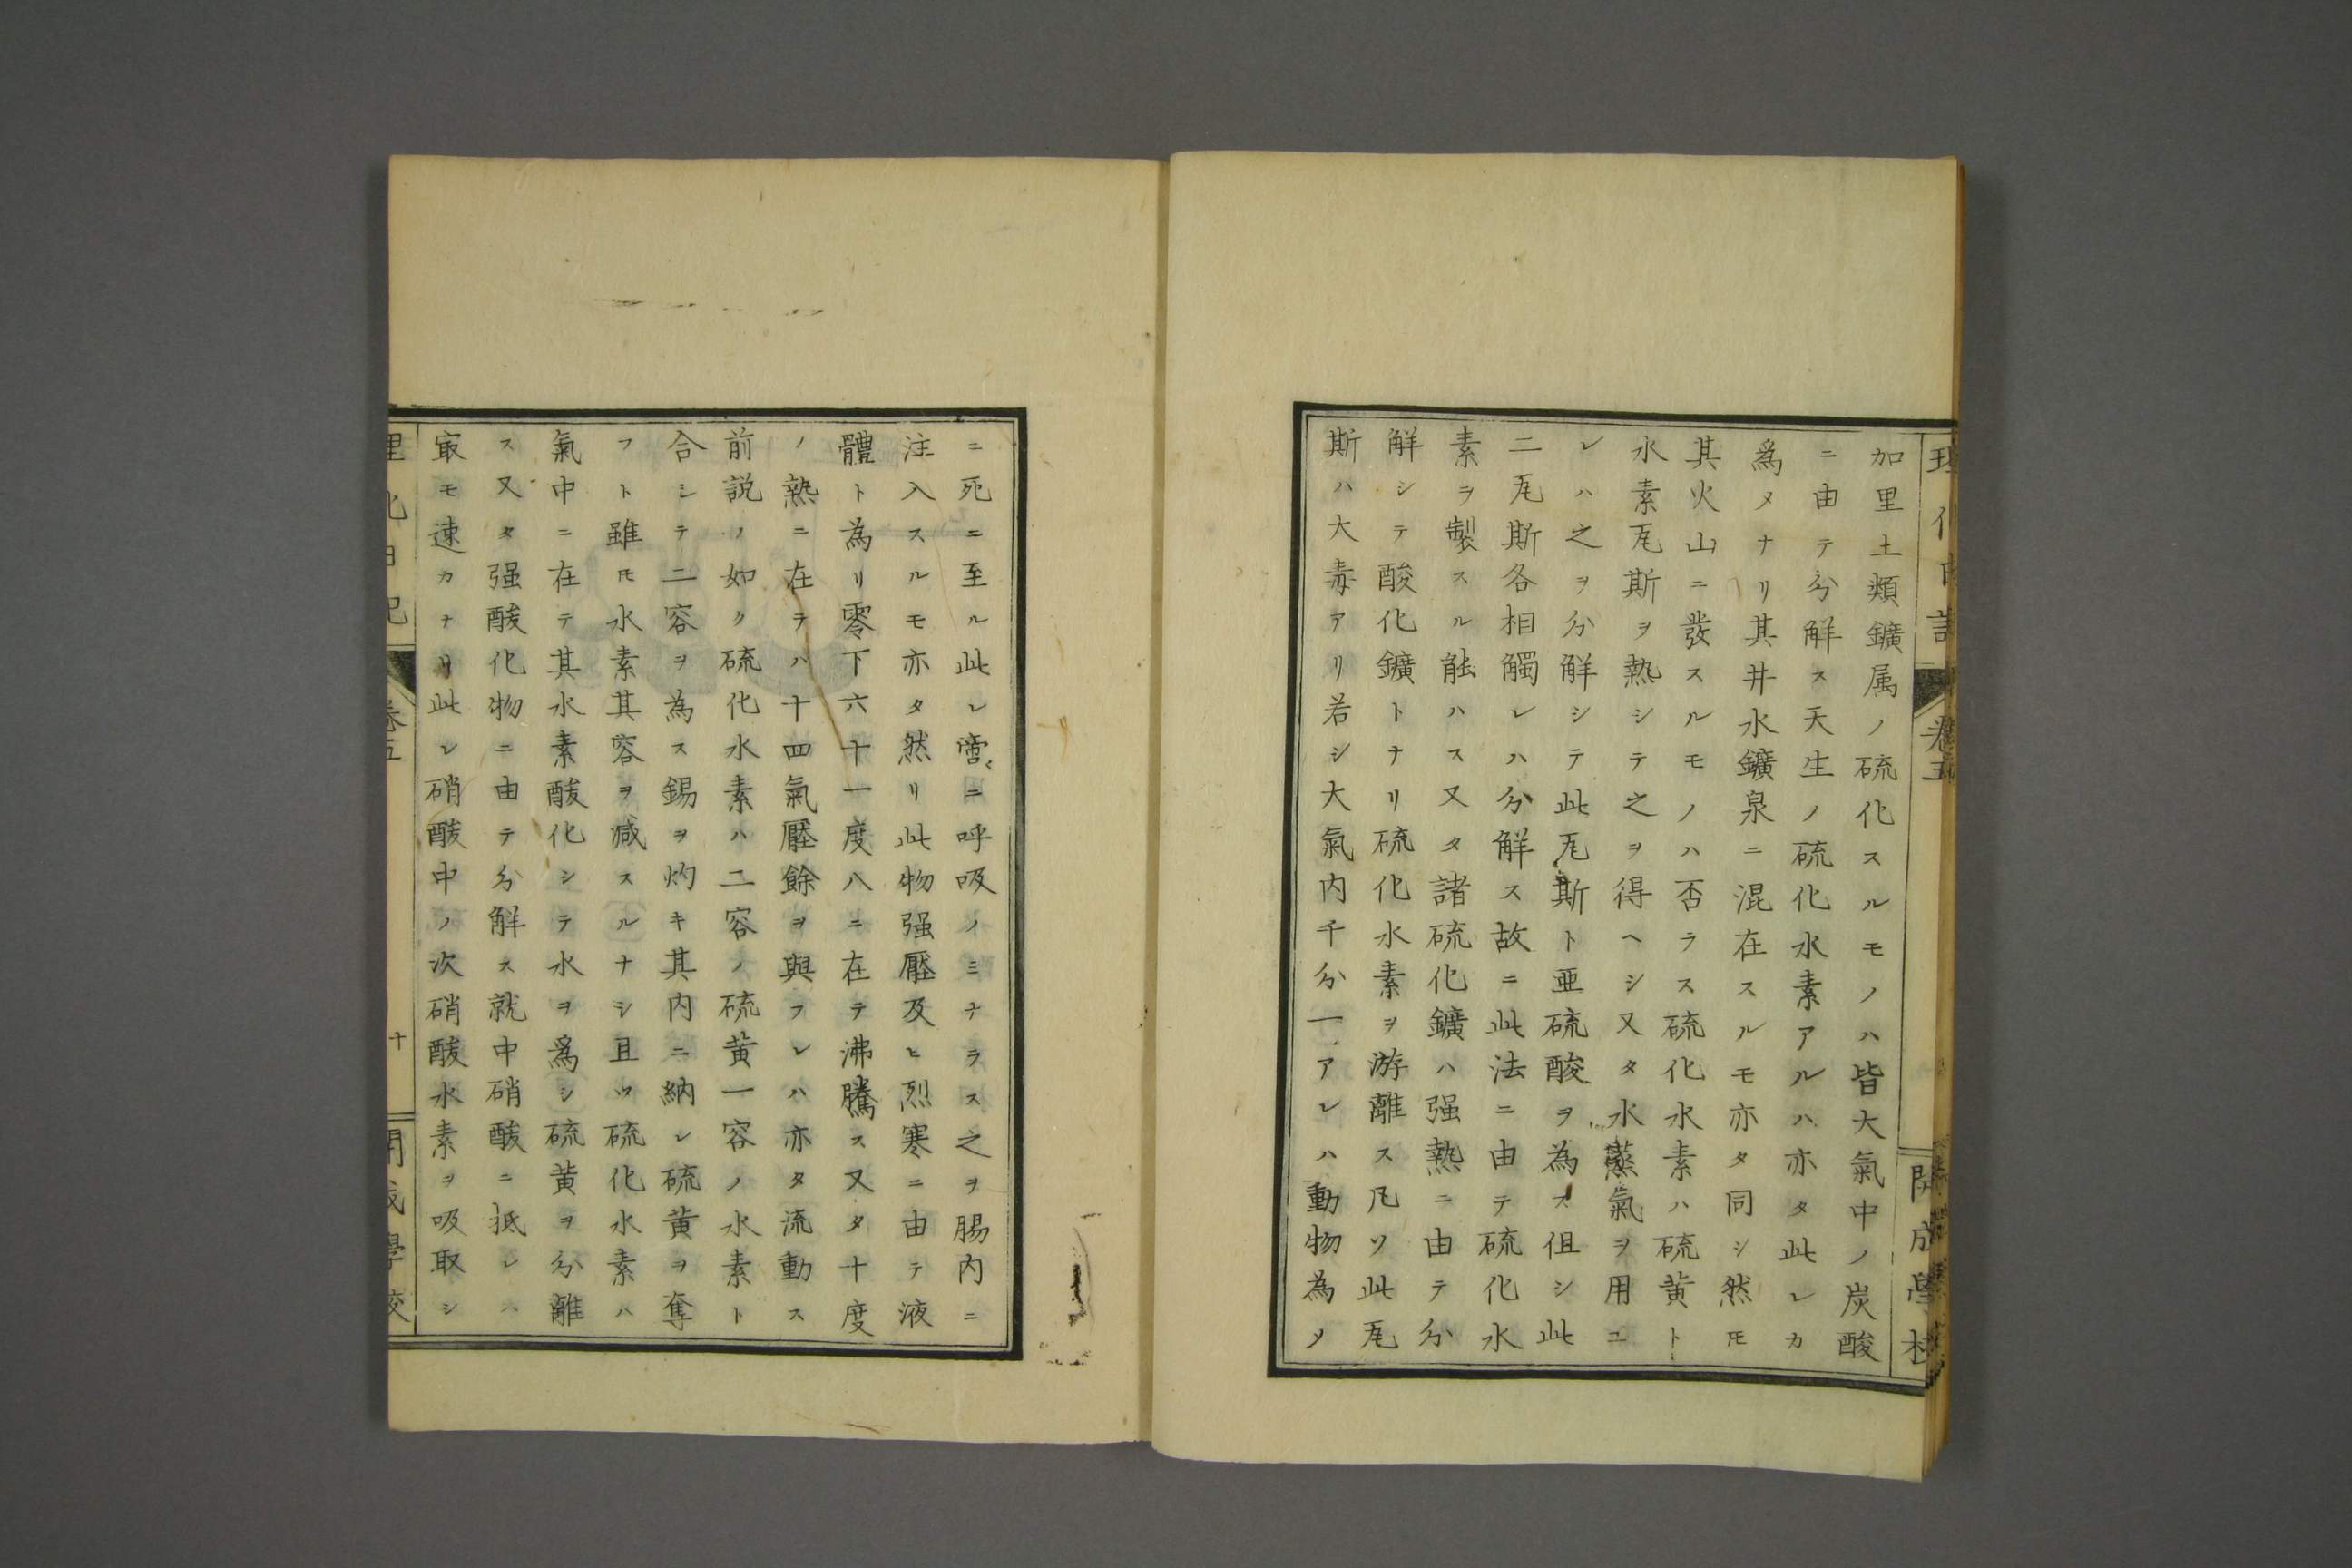 加里土類鑛属ノ硫化スルモノハ皆大氣中ノ炭酸
ニ由テ分解ス天生ノ硫化水素アルハ亦タ此レカ
爲メナリ其井水鑛泉ニ混在スルモ亦タ同シ然𪜈
其火山ニ發スルモノハ否ラス硫化水素ハ硫黄ト
水素瓦斯ヲ熱シテ之ヲ得ヘシ又タ水蒸氣ヲ用ユ
レハ之ヲ分解シテ此瓦斯ト亜硫酸ヲ為ス但シ此
二瓦斯各相觸レハ分解ス故ニ此法ニ由テ硫化水
素ヲ製スル能ハス又タ諸硫化鑛ハ强熱ニ由テ分
解シテ酸化鑛トナリ硫化水素ヲ游離ス凡ソ此瓦
斯ハ大毒アリ若シ大氣内千分一アレハ動物為メ
ニ死ニ至ル此レ啻ニ呼吸ノミナラス之ヲ腸内ニ
注入スルモ亦タ然リ此物强壓及ヒ烈寒ニ由テ液
體ト為リ零下六十一度八ニ在テ沸騰ス又タ十度
ノ熱ニ在テハ十四氣壓餘ヲ與フレハ亦タ流動ス
前説ノ如ク硫化水素ハ二容ノ硫黄一容ノ水素ト
合シテ二容ヲ為ス錫ヲ灼キ其内ニ納レ硫黄ヲ奪
フト雖𪜈水素其容ヲ减スルナシ且ツ硫化水素ハ
氣中ニ在テ其水素酸化シテ水ヲ爲シ硫黄ヲ分離
ス又タ强酸化物ニ由テ分解ス就中硝酸ニ抵レハ
㝡モ速カナリ此レ硝酸中ノ次硝酸水素ヲ吸取シ
卷五
十
開成學校